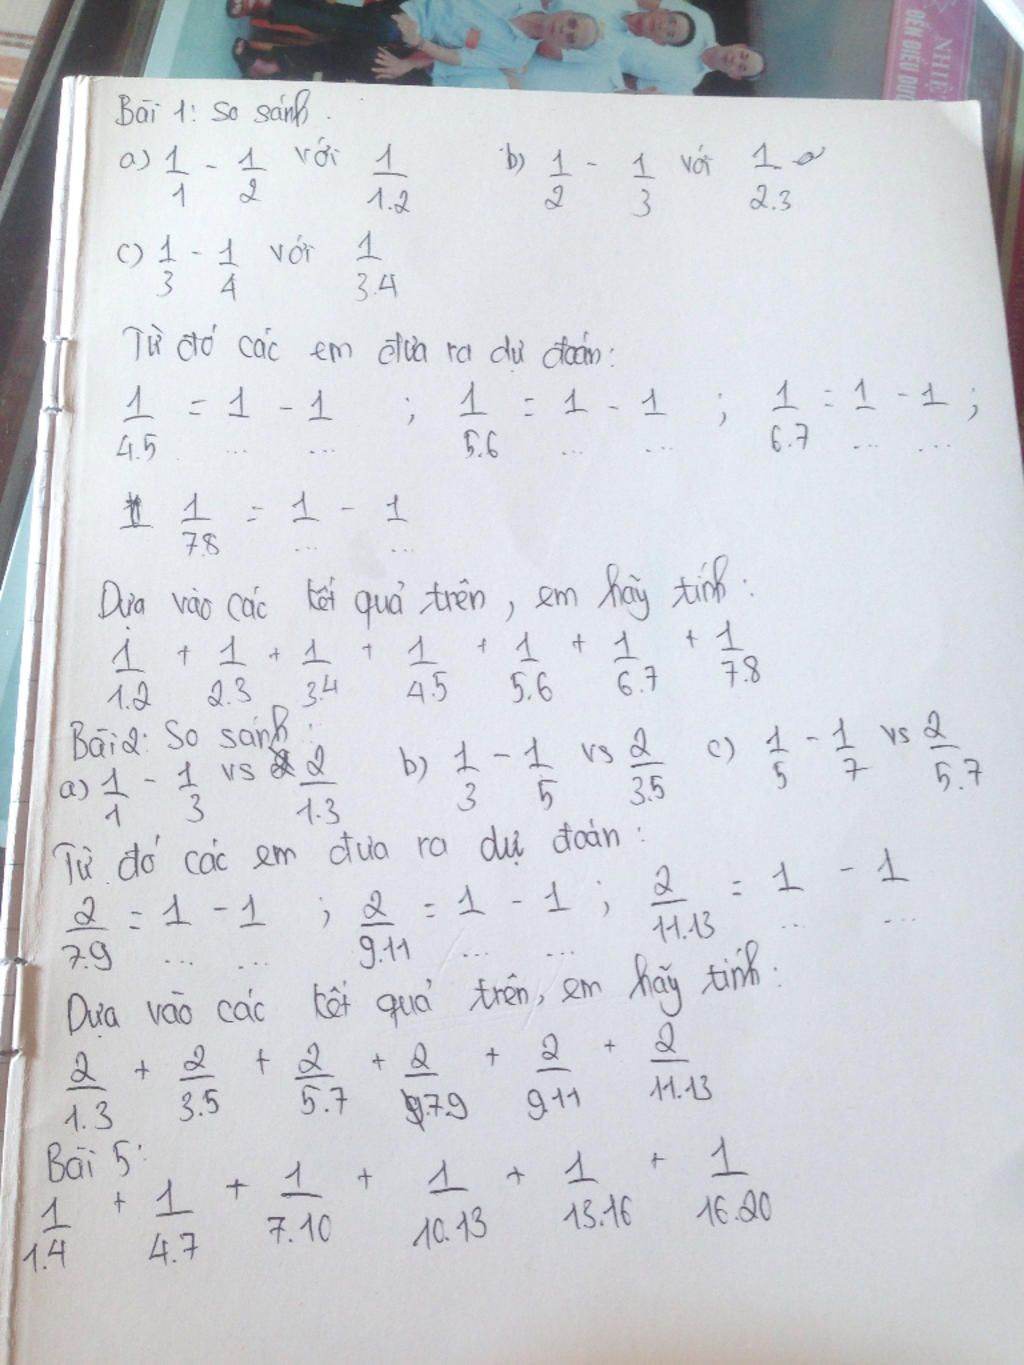 NHIỆ
ĐẾN ĐIỀU DƯ
Bài 1: So sánh.
a) 1/1 - 1/2 với 1/1.2 b) 1/2 - 1/3 với 1/2.3
c) 1/3 - 1/4 với 1/3.4
Từ đó các em đưa ra dự đoán:
1/4.5 = 1/... - 1/... ; 1/5.6 = 1/... - 1/... ; 1/6.7 = 1/... - 1/... ;
1/7.8 = 1/... - 1/...
Dựa vào các kết quả trên, em hãy tính:
1/1.2 + 1/2.3 + 1/3.4 + 1/4.5 + 1/5.6 + 1/6.7 + 1/7.8
Bài 2: So sánh:
a) 1/1 - 1/3 vs 2/1.3 b) 1/3 - 1/5 vs 2/3.5 c) 1/5 - 1/7 vs 2/5.7
Từ đó các em đưa ra dự đoán:
2/7.9 = 1/... - 1/... ; 2/9.11 = 1/... - 1/... ; 2/11.13 = 1/... - 1/...
Dựa vào các kết quả trên, em hãy tính:
2/1.3 + 2/3.5 + 2/5.7 + 2/7.9 + 2/9.11 + 2/11.13
Bài 5:
1/1.4 + 1/4.7 + 1/7.10 + 1/10.13 + 1/13.16 + 1/16.20